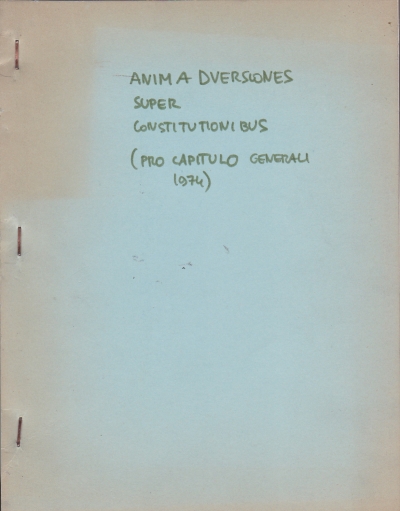 ANIMADVERSIONES
SUPER
CONSTITUTIONIBUS
(PRO CAPITULO GENERALI
1974)